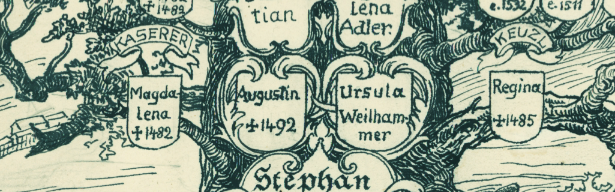 ✝1482
tian
Lena
Adler.
e.1532
e.1511
KASERER
KEUZL
Magda-
lena
✝1482
Augustin
✝1492
Ursula
Weilham-
mer
Regina
✝1485
Stephan